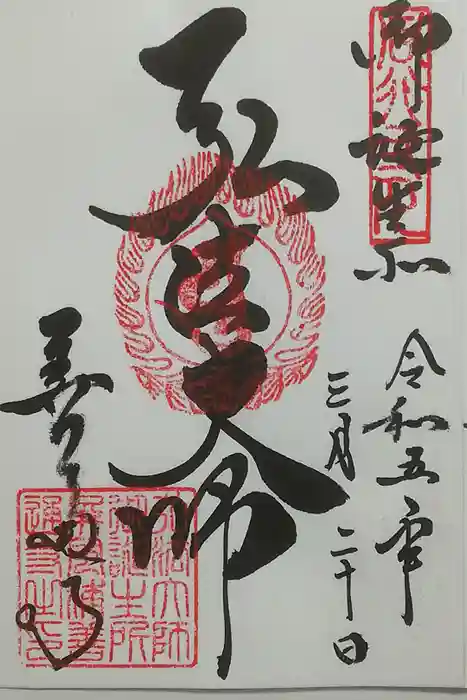 御誕生所
令和五年
三月二十日
弘法大師
善通寺
弘法大師
御誕生所
屏風浦善
通寺之印